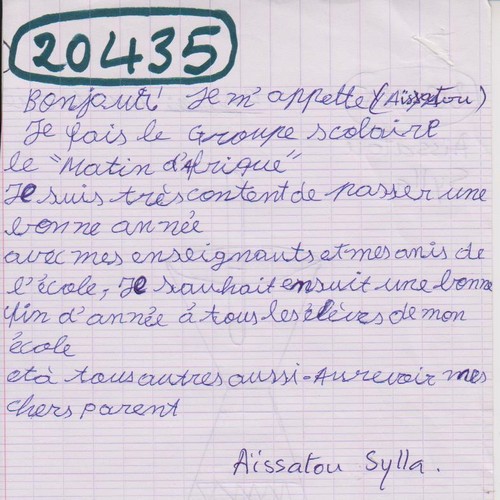 20435
Bonjauti Je m'appette (Aïssatou)
Je fais le Groupe scolaire
le "Matin d'Afrique"
Je suis très content de passer une
bonne année
avec mes enseignants et mes amis de
l'école, Je sauhait ensuit une bonne
fin d'année á tous les élèves de mon
école
et à tous autres aussi-Au revoir mes
chers parent
Aïssatou Sylla.